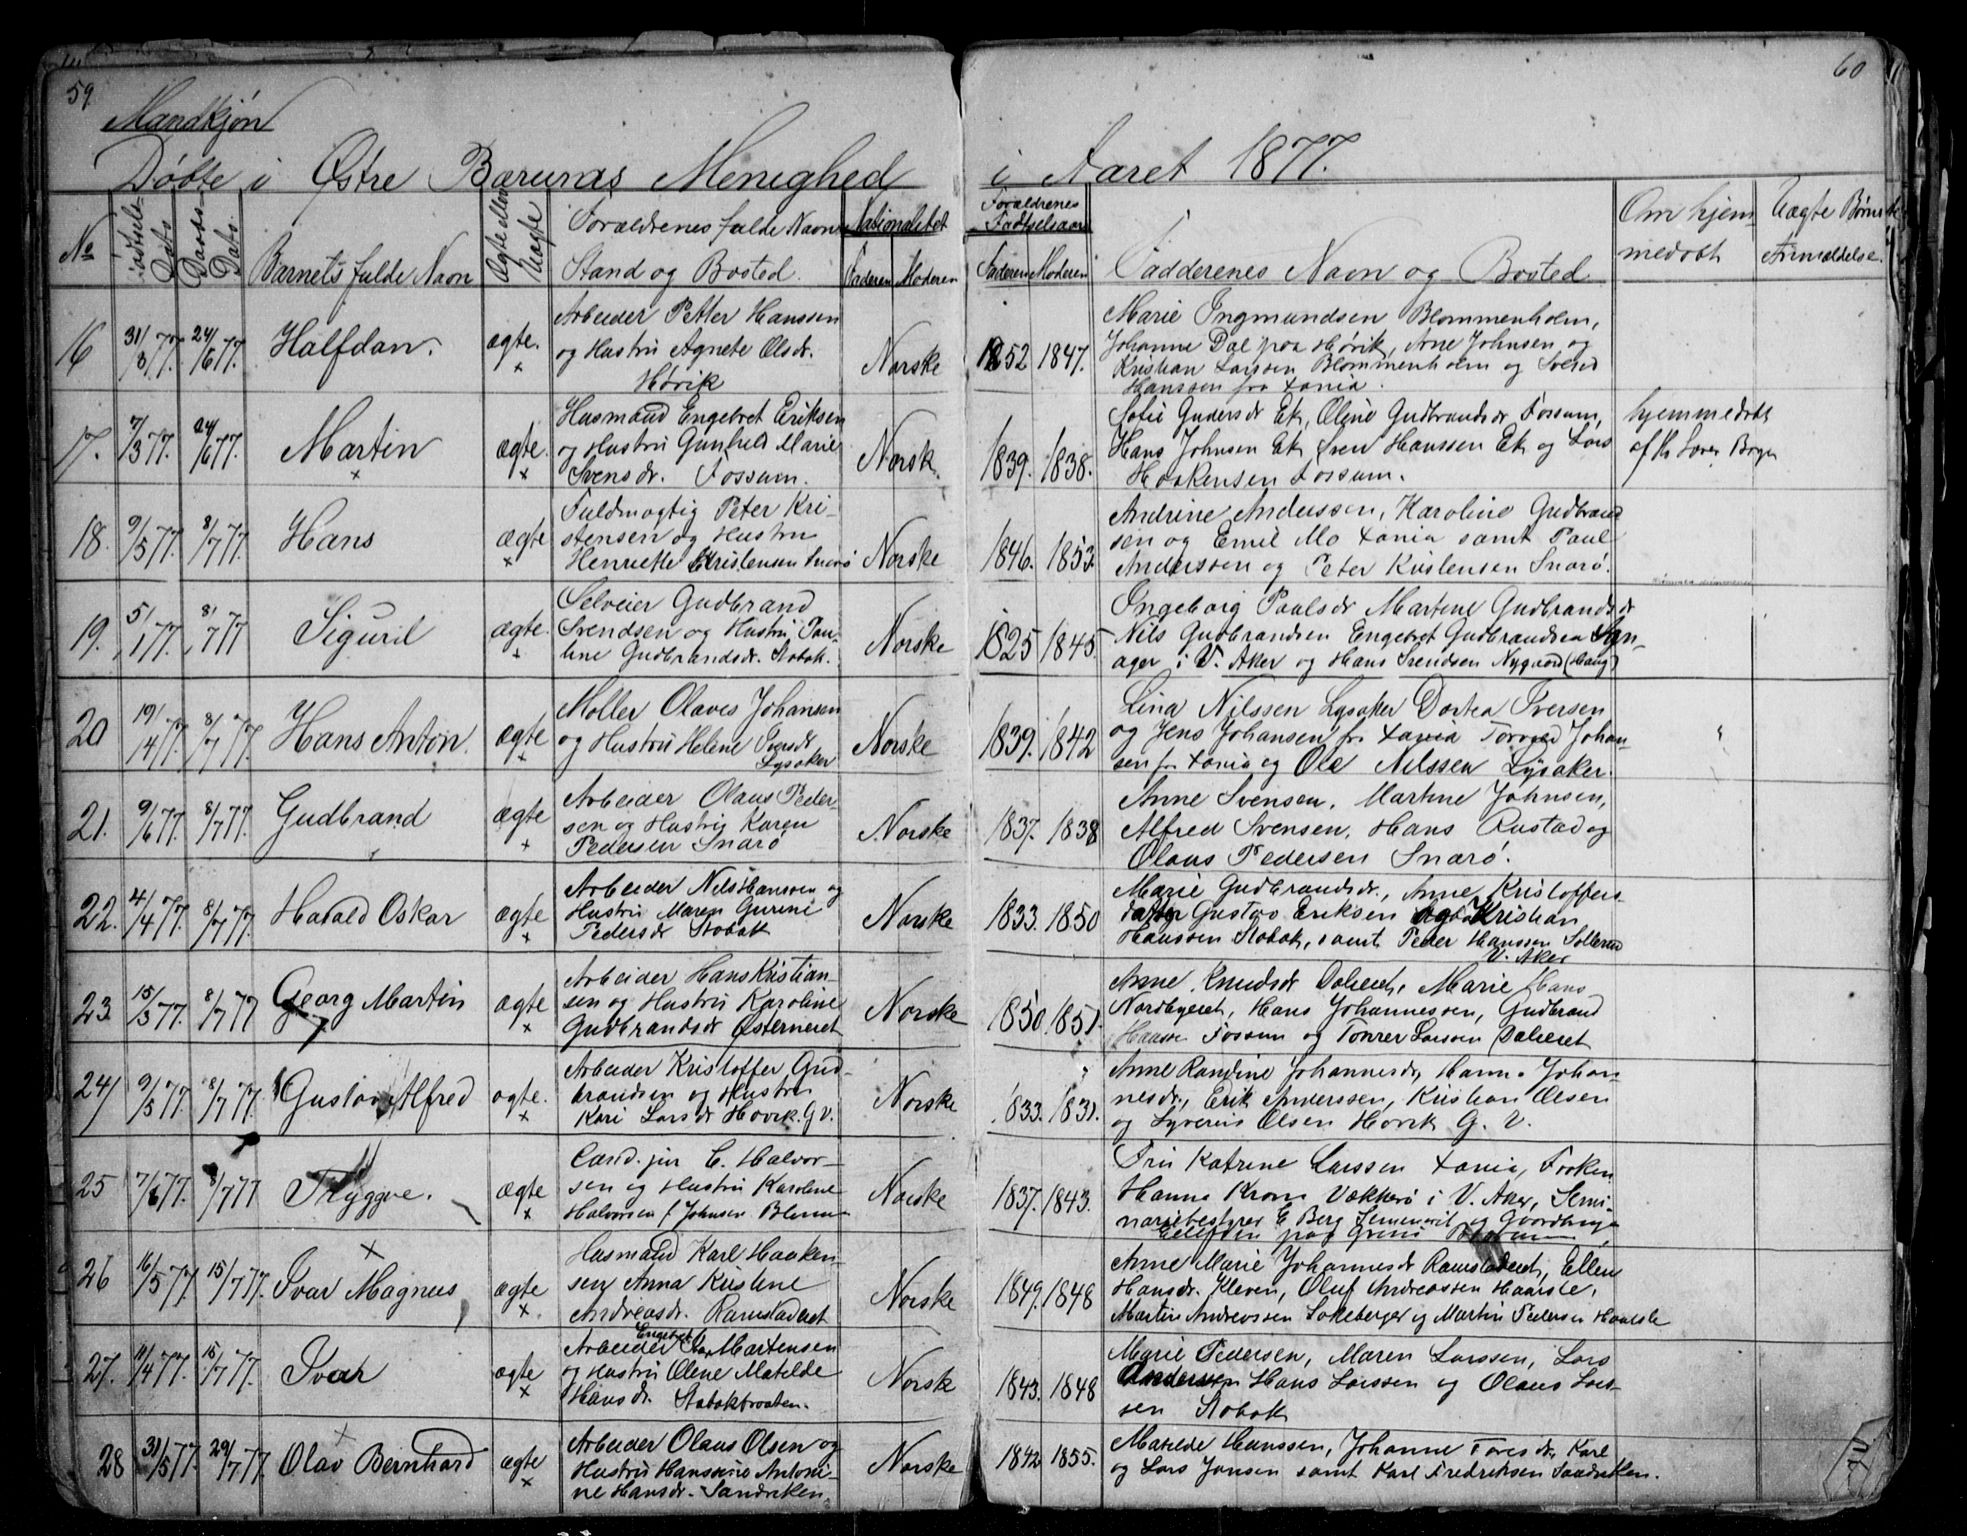 59
60
Mandkjøn
Døbte i Østre Bærums Menighed i Aaret 1877.
No
Fødsels-Dato
Daabs-Dato.
Barnets fulde Navn
Ægte eller Uægte
Forældrenes fulde Navn
Stand og Bosted.
Nationalitet
Faderen Moderen
Forældrenes
Fødselsaar
Faderen Moderen
Fadderenes Navn og Bosted
Om hjem-
medøbt
Uægte Børns
Anmeldelse.
16 31/3 77. 24/6 77. Halfdan. ægte.
Arbeider Petter Hanssen
og Hustru Agnete Olsdr.
Høvik
Norske 1852 1847.
Marie Ingmundsen Blommenholm,
Johanne Dal paa Høvik, Arne Johnsen og
Kristian Larssen Blommenholm og
Hanssen fra Xania.
17. 7/3 77. 24/6 77. Martin ægte.
Husmand Engebret Eriksen
og Hustru Gunhild Marie
Svensdr. Fossum.
Norske 1839. 1838.
Sofie Gudersdr Ek, Oline Gudbrandsdr Fossum,
Hans Johnsen Ek, Sven Hanssen Ek og Lars
Haakensen Fossum.
hjemmedøbt
af
18. 9/5 77. 8/7 77. Hans ægte
Fuldmægtig Peter Kri-
stensen og Hustru
Henriette Kristensen Snarø
Norske 1846. 1853.
Andrine Anderssen, Karoline Gudbrand
sen og Emil Mo Xania samt Paul
Anderssen og Peter Kristensen Snarø.
19. 5/1 77. 8/7 77 Sigurd ægte.
Selveier Gudbrand
Svendsen og Hustru Pau-
line Gudbrandsdr. Stabæk.
Norske 1825 1845
Ingeborg Paulsdr Martine Gudbrandsdr
Nils Gudbrandsen Engebret Gudbrandsen
ager i V. Aker og Hans Svendsen Nygaard (Haug)
20 19/4 77. 8/7 77. Hans Anton. ægte
Møller Olaves Johansen
og Hustru Helene Iversdr
Lysaker
Norske 1839. 1842
Lina Nilssen Lysaker Dortea Iversen
og Jens Johansen fr Xania Johan-
sen fr Xania og Ole Nilssen Lysaker.
21. 9/6 77. 8/7 77. Gudbrand ægte
Arbeider Olaus Peder-
sen og Hustru Karen
Pedersen Snarø
Norske 1837. 1838
Anne Svensen, Martine Johnsen,
Alfred Svensen, Hans Rustad og
Olaus Pedersen Snarø.
22. 4/4 77. 8/7 77. Harald Oskar ægte
Arbeider Nils Hanssen og
Hustru Maren Gurine
Pedersdr Stabæk
Norske 1833. 1850
Marie Gudbrandsdr., Anne Kristoffers-
datter Gustav Eriksen og Kristian
Hanssen Stabæk, samt Peder Hanssen Sollerud
V. Aker
23. 15/3 77. 8/7 77 Georg Martin ægte
Arbeider Hans Kristian-
sen og Hustru Karoline
Gudbrandsdr Østerneiet
Norske 1850. 1851.
Anne Knudsdr Daleiet, Marie Hans
Nordbyeiet, Hans Johannessen, Gudbrand
Hanssen Fossum og Larsen Daleiet
24 9/5 77. 8/7 77. Gustav Alfred ægte.
Arbeider Kristoffer Gud-
brandsen og Hustru
Kari Larsdr Høvik. G V.
Norske 1833. 1831.
Anne Randine Johannesdr, Hanna Johan-
nesdr., Erik Anderssen, Kristian Olsen
og Syverin Olsen Høvik G. V.
25 7/6 77. 8/7 77 Tryggve. ægte
Cand. jur C. Halvor-
sen og Hustru Karoline
Halvorsen f. Johnsen
Norske 1837. 1843.
Fru Katrine Larssen Xania, Frøken
Hanna Krom Vækkerø i V. Aker, Semi-
nariebestyrer E Berg og Gaardbruger
paa Grini Bærum
26 16/5 77. 15/7 77. Ivar Magnus ægte
Husmand Karl Haaken-
sen Anna Kristine
Andreasdr. Ramstadeiet
Norske 1849. 1848
Anne Marie Johannesdr Ramstadeiet, Ellen
Hansdr. Kleven, Oluf Andreassen Haarsle,
Martin Andreassen og Martin Pedersen
27. 11/4 77. 15/7 77. Ivar ægte
Arbeider Engebret Martensen
og Hustru Oline Matilde
Hansdr. Stabækbraaten.
Norske 1843. 1848
Marie Pedersen, Maren Larssen, Lars
Andersen Hans Larssen og Olaus Lars-
sen Stabæk
28 31/5 77. 29/7 77. Olav Bernhard ægte
Arbeider Olaus Olsen og
Hustru Hanssine Antoni-
ne Hansdr. Sandviken.
Norske 1842 1855.
Matilde Hanssen, Johanne Toresdr, Karl
og Lars Jonsen samt Karl Fredriksen Sandviken.